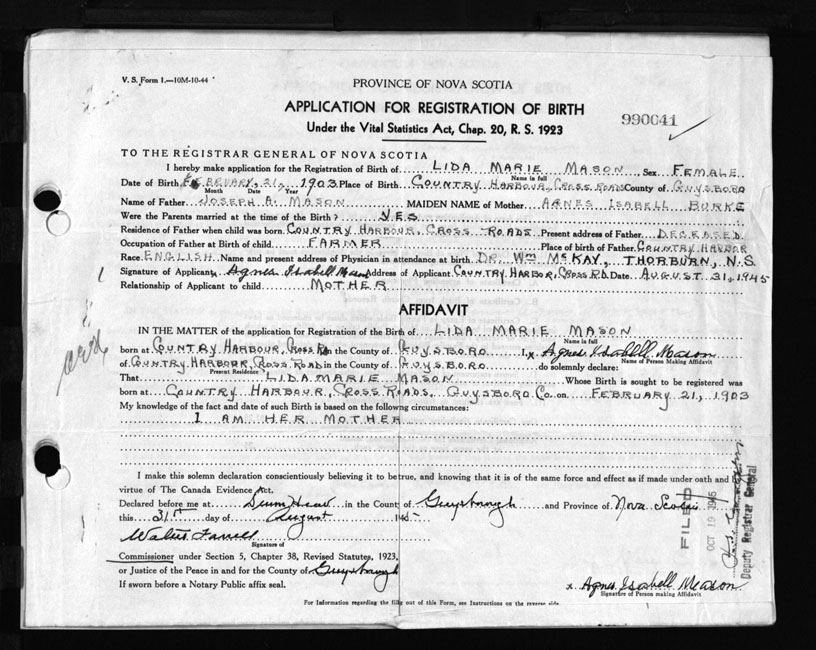 V. S. Form 1.—10M-10-44
PROVINCE OF NOVA SCOTIA
APPLICATION FOR REGISTRATION OF BIRTH
990041
Under the Vital Statistics Act, Chap. 20, R. S. 1923
TO THE REGISTRAR GENERAL OF NOVA SCOTIA
I hereby make application for the Registration of Birth of LIDA MARIE MASON Sex FEMALE
Name in full
Date of Birth FEBRUARY, 21, 1903 Place of Birth COUNTRY HARBOUR, CROSS ROADS County of GUYSBORO
Month Date Year
Name of Father JOSEPH A. MASON MAIDEN NAME of Mother AGNES ISABELL BURKE
Were the Parents married at the time of the Birth? YES
Residence of Father when child was born COUNTRY HARBOUR, CROSS ROADS Present address of Father DECEASED
Occupation of Father at Birth of child FARMER Place of birth of Father COUNTRY HARBOR
Race ENGLISH Name and present address of Physician in attendance at birth DR. WM McKAY, THORBURN, N.S.
Signature of Applicant Agnes Isabell Mason Address of Applicant COUNTRY HARBOR, CROSS RD. Date AUGUST 31, 1945
Relationship of Applicant to child MOTHER
AFFIDAVIT
IN THE MATTER of the application for Registration of the Birth of LIDA MARIE MASON
Name in full
born at COUNTRY HARBOUR, CROSS RD in the County of GUYSBORO I, x Agnes Isabell Mason
Name of Person Making Affidavit
of COUNTRY HARBOUR, CROSS ROAD in the County of GUYSBORO do solemnly declare:
Present Residence
That LIDA MARIE MASON Whose Birth is sought to be registered was
born at COUNTRY HARBOUR, CROSS ROADS, GUYSBORO CO. on FEBRUARY 21, 1903
My knowledge of the fact and date of such Birth is based on the following circumstances:
I AM HER MOTHER
I make this solemn declaration conscientiously believing it to be true, and knowing that it is of the same force and effect as if made under oath and by
virtue of The Canada Evidence Act.
Declared before me at in the County of Guysborough and Province of Nova Scotia
this 31st day of August 1945
Signature of
Commissioner under Section 5, Chapter 38, Revised Statutes, 1923,
or Justice of the Peace in and for the County of Guysborough
If sworn before a Notary Public affix seal.
x Agnes Isabell Mason
Signature of Person making Affidavit
For Information regarding the filling out of this Form, see Instructions on the reverse side.
FILED
OCT 19 1945
Deputy Registrar General